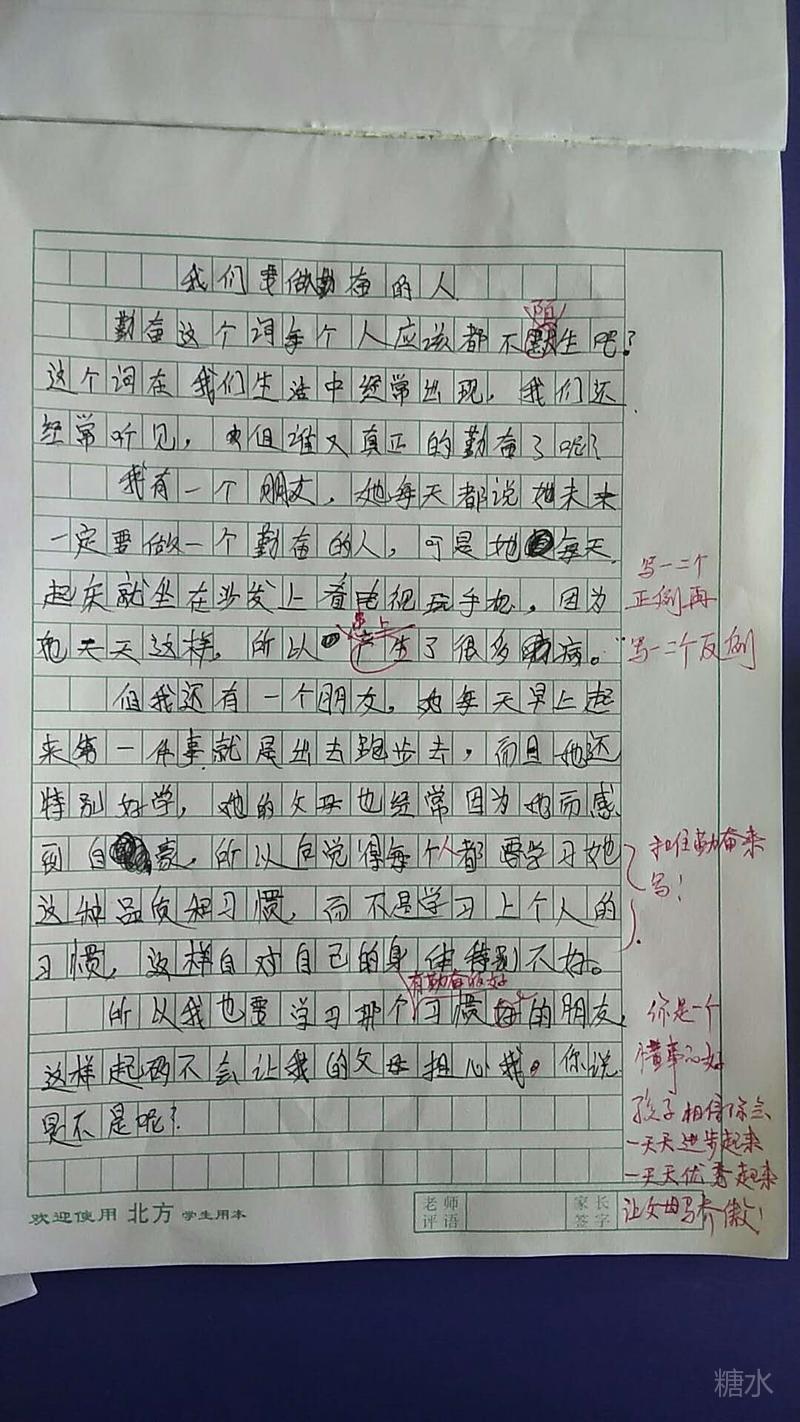 我们要做勤奋的人
勤奋这个词每个人应该都不默生吧?
陌
这个词在我们生活中经常出现,我们还
经常听见,但谁又真正的勤奋了呢?
我有一个朋友,她每天都说她未来
一定要做一个勤奋的人,可是她每天
起床就坐在沙发上看电视玩手机,因为
她天天这样,所以产生了很多病。
患上
但我还有一个朋友,她每天早上起
来第一件事就是出去跑步去,而且她还
特别好学,她的父母也经常因为她而感
到自豪,所以我觉得每个人都要学习她
这种品质和习惯,而不是学习上个人的
习惯,这样自对自己的身体特别不好。
有勤奋的好
所以我也要学习那个习惯好的朋友,
这样起码不会让我的父母担心我。你说
是不是呢?
写一二个
正例再
写一二个反例
扣住勤奋来
写!
你是一个
懂事的好
孩子相信你会
一天天进步起来
一天天优秀起来
让父母骄傲!
欢迎使用 北方 学生用本
老师评语
家长签字
糖水